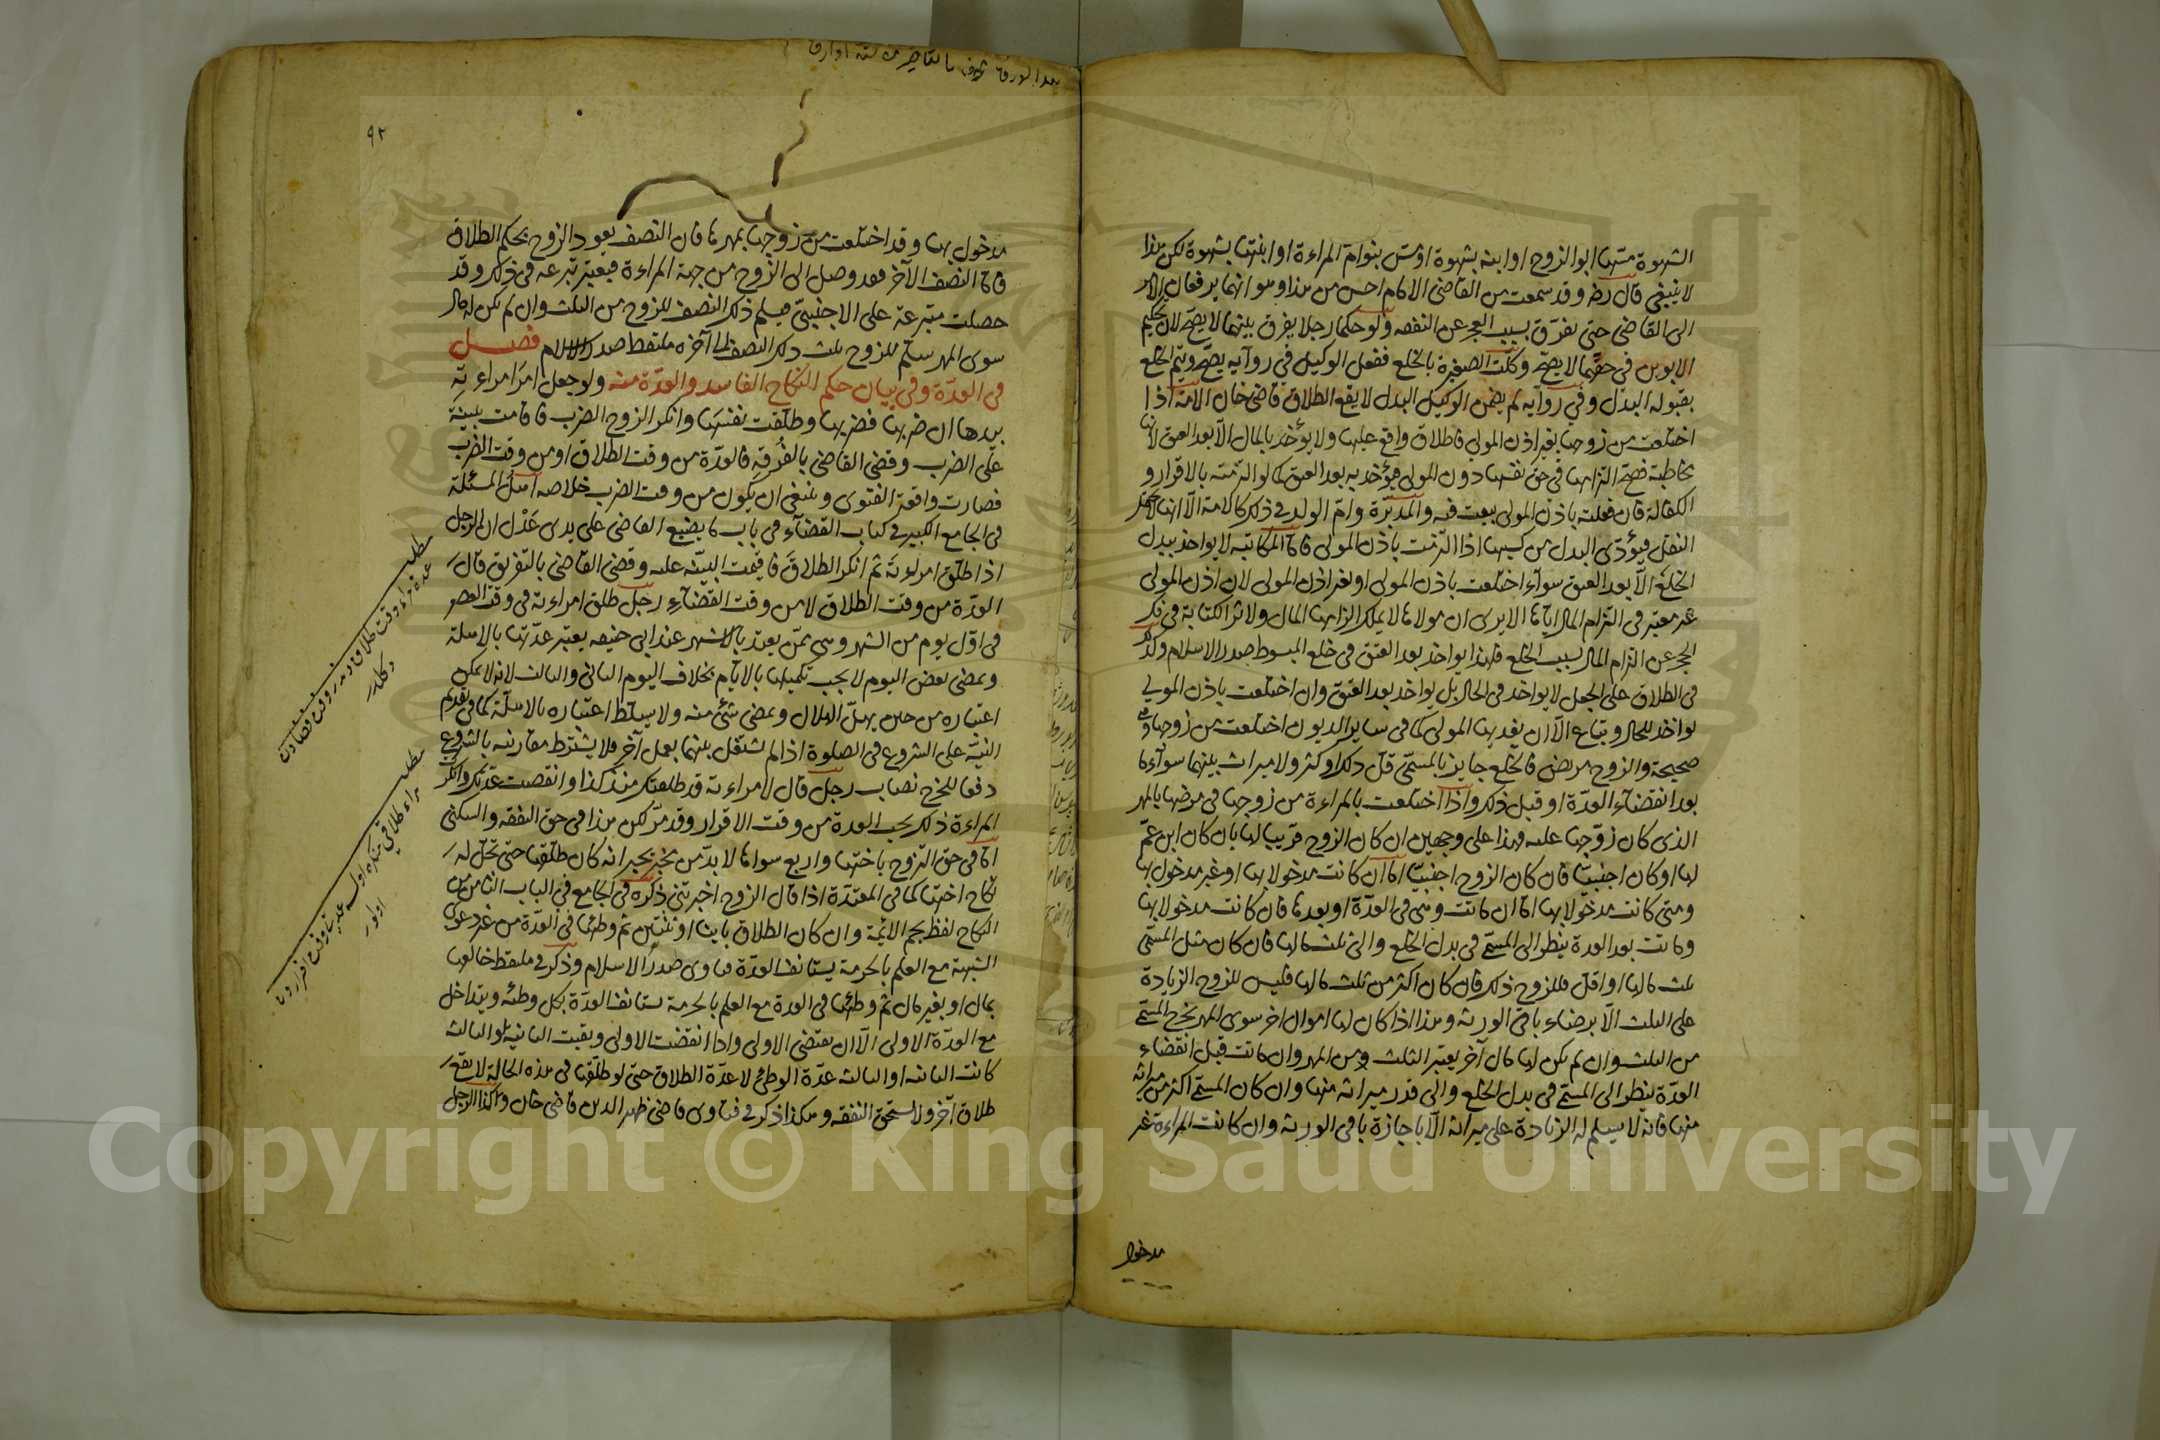 الشهوة مسّها ابو الزوج او ابنه بشهوة او مسّ بنوام المراءة او ابنتها بشهوة لكن هذا
لا ينبغى قال رضه وقد سمعت من القاضى الامام احسن من هذا وهو انهما يرفعان الامر
الى القاضى حتى يفرق بسبب العجز عن النفقه ولو حكما رجلا يفرق بينهما لا يصح لان تحكيم
الابوين فى حقهما لا يصح وكلت الصغيرة بالخلع ففعل الوكيل فى رواية يصح ويتم الخلع
بقبوله البدل وفى رواية لم يضمن الوكيل البدل لا يقع الطلاق قاضى خان الامة اذا
اختلعت من زوجها بغير اذن المولى فاطلاق واقع عليها ولا يؤخذ بالمال الا بعد العتق لانها
مخاطبة فصح التزامها فى حق نفسها دون المولى فيؤخذ به بعد العتق كما لو التزمته بالاقرار و
الكفالة فان فعلته باذن المولى بيعت فيه والمدبرة وام الولد فى ذلك كالامة الا انها لا تحتمل
النقل فيؤدى البدل من كسبها اذا التزمت باذن المولى فاما المكاتبه لا يواخذ ببدل
الخلع الا بعد العتق سوآء اختلعت باذن المولى او بغير اذن المولى لان اذن المولى
غير معتبر فى التزام المال اياها الا يرى ان مولاها لا يملك الزامها المال ولا اثر الكتابة فى فك
الحجر عن التزام المال بسبب الخلع فلهذا يواخذ بعد العتق فى خلع المبسوط صدر الاسلام وكذا
فى الطلاق على الجعل لا يواخذ فى الحال بل يواخذ بعد العتق وان اختلعت باذن المولى
يواخذ للحال ويباع الا ان يفديها المولى كما فى ساير الديون اختلعت من زوجها وهى
صحيحة والزوج مريض فالخلع جايز بالمسمى قل ذلك او كثر ولا ميراث بينهما سوآء مات
بعد انقضآء العدة او قبل ذلك واذا اختلعت بالمراءة من زوجها فى مرضها بالمهر
الذى كان زوجها عليه فهذا على وجهين ان كان الزوج قريبا لها بان كان ابن عم
لها او كان اجنبيا فان كان الزوج اجنبيا اما ان كانت مدخولا بها او غير مدخول بها
ومتى كانت مدخولا بها اما ان ماتت وهى فى العدة او بعدها فان كانت مدخولا بها
وماتت بعد العدة ينظر الى المسمى فى بدل الخلع والى ثلث مالها فان كان مثل المسمى
ثلث مالها او اقل فللزوج ذلك فان كان اكثر من ثلث مالها فليس للزوج الزيادة
على الثلث الا برضاء باقى الورثه وهذا اذا كان لها اموال اخر سوى المهر يخرج المسمى
من الثلث وان لم يكن لها مال آخر يعتبر الثلث من المهر وان ماتت قبل انقضاء
العدة ينظر الى المسمى فى بدل الخلع والى قدر ميراثه منها وان كان المسمى اكثر من ميراثه
منها فانه لا يسلم له الزيادة على ميراثه الا باجازة باقى الورثه وان كانت المراءة غير
مدخول
٩٢
مدخول بها وقد اختلعت من زوجها بمهرها فان النصف يعود الزوج بحكم الطلاق
فاما النصف الآخر فقد وصل الى الزوج من جهة المراءة فيعتبر تبرعه فى ذلك وقد
حصلت متبرعة على الاجنبى فيسلم ذلك النصف للزوج من الثلث وان لم يكن لها مال
سوى المهر سلم للزوج ثلث ذلك النصف الى آخره ملتقط صدر الاسلام فصل
فى العدة وفى بيان حكم النكاح الفاسد والعدة منه ولو جعل امر امراءته
بيدها ان ضربها فضربها وطلقت نفسها وانكر الزوج الضرب فاقامت بينة
على الضرب وقضى القاضى بالفرقه فالعدة من وقت الطلاق او من وقت الضرب
فصارت واقعة الفتوى وينبغى ان يكون من وقت الضرب خلاصه اصل المسئلة
فى الجامع الكبير فى كتاب القضآء فى باب ما يضيع القاضى على يدى عدل ان الرجل
اذا طلق امراءته ثم انكر الطلاق فاقيمت البينة عليه وقضى القاضى بالتفريق قال
العدة من وقت الطلاق لا من وقت القضآء رجل طلق امراءته فى وقت العصر
فى اول يوم من الشهر وهى ممن يعتد بالاشهر عند ابى حنيفه يعتبر عدتها بالاهلة
وبمضى بعض اليوم لا يجب تكميلها بالايام بخلاف اليوم الثانى والثالث لانه لا يمكن
اعتباره من حين يهل الهلال وبمضى شئ منه ولا يسقط اعتباره بالاهلة كما فى تقديم
النية على الشروع فى الصلوة اذا لم يشتغل بينهما بعمل آخر فلا يشترط مقارنته بالشروع
دفعا للحرج نصاب رجل قال لامراءته قد طلقتك منذ كذا وانقضت عدتك وانكرت
المراءة ذلك يجب العدة من وقت الاقرار وقد مر لكن هذا فى حق النفقه والسكنى
اما فى حق التزوج باختها واربع سواها لا بد من مخبر يخبر انه كان طلقها حتى تحل له
نكاح اختها كما فى المعتدة اذا قال الزوج اخبرتنى ذكره فى الجامع فى الباب الثامن من
النكاح لفظ نجم الائمة وان كان الطلاق باينا او ثنتين ثم وطئها فى العدة من غير دعوى
الشبهة مع العلم بالحرمة يستانف العدة فتاوى صدر الاسلام وذكر فى ملتقط خالعها
بمال او بغير مال ثم وطئها فى العدة مع العلم بالحرمة تستانف العدة بكل وطئه ويتداخل
مع العدة الاولى الا ان تقتضى الاولى واذا انقضت الاولى وبقيت الثانيه او الثالثه
كانت الثانيه او الثالثه عدة الوطئ لا عدة الطلاق حتى لو طلقها فى هذه الحالة لا يقع
طلاق آخر ولا تستحق النفقه وهكذا ذكر فى فتاوى قاضى ظهير الدين قاضى خان وكذا الرجل
مطلب
مطلب